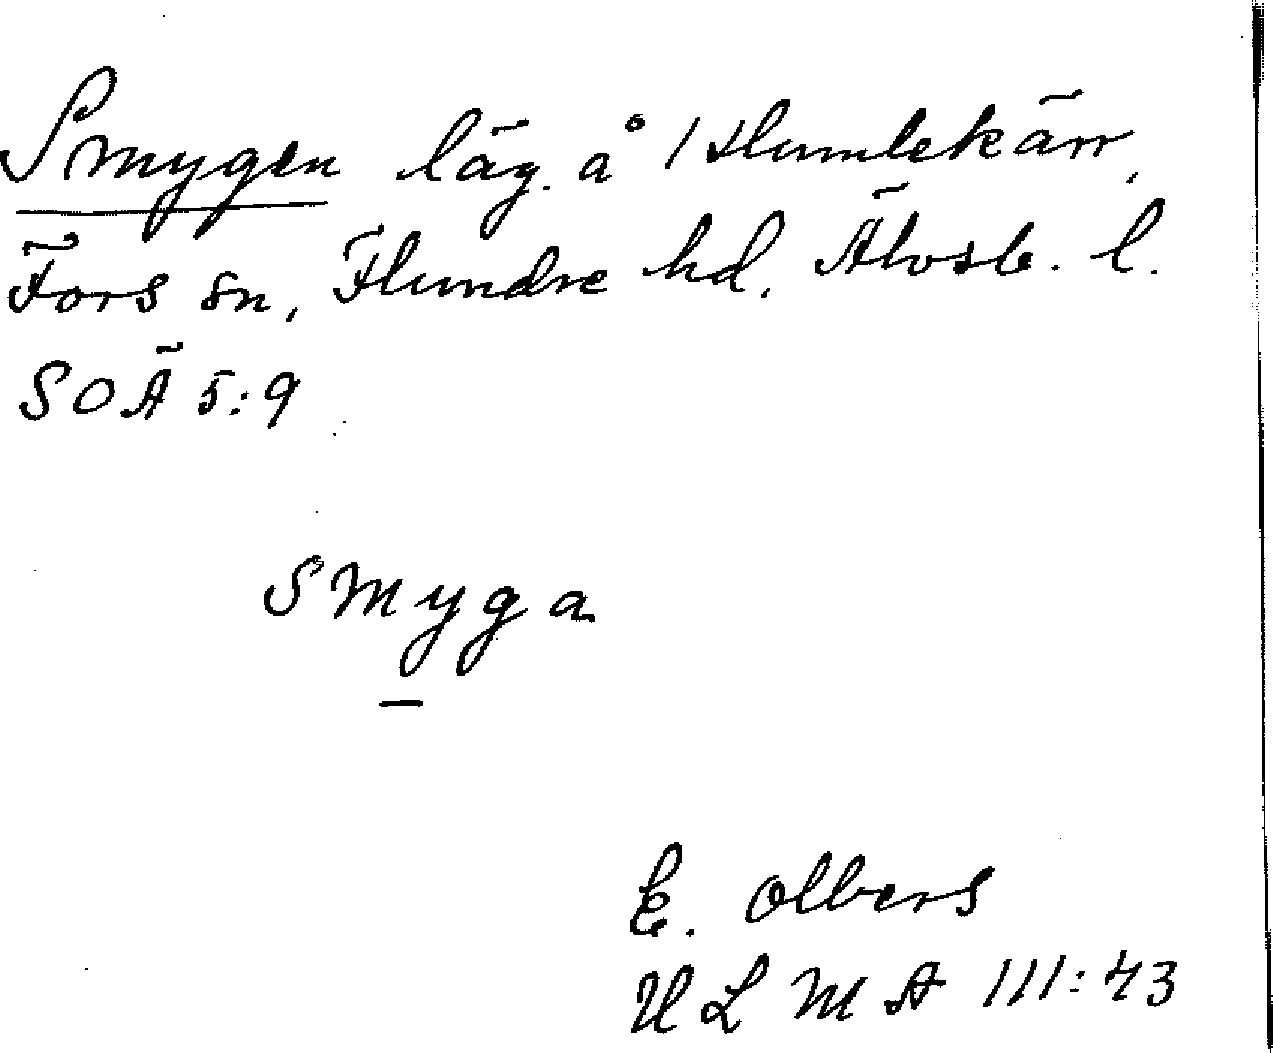 Smygen läg. å 1 Humlekärr,
Fors sn, Flundre hd, Älvsb. l.
SOÄ 5:9
smyga
E. Olbers
ULMA 111:43